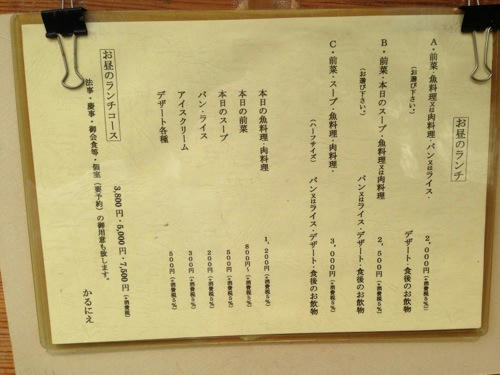 お昼のランチ
A・前菜・魚料理又は肉料理・パン又はライス・
(お選び下さい。)
デザート・食後のお飲物
2,000円(+消費税5%)
B・前菜・本日のスープ・魚料理又は肉料理
(お選び下さい。)
パン又はライス・デザート・食後のお飲物
2,500円(+消費税5%)
C・前菜・スープ・魚料理・肉料理・
(ハーフサイズ)
パン又はライス・デザート・食後のお飲物
3,000円(+消費税5%)
本日の魚料理・肉料理 1,200円(+消費税5%)
本日の前菜 800円〜(+消費税5%)
本日のスープ 500円(+消費税5%)
パン・ライス 200円(+消費税5%)
アイスクリーム 300円(+消費税5%)
デザート各種 500円(+消費税5%)
お昼のランチコース
3,800円・5,000円・7,500円(+消費税)
法事・慶事・御会食等・個室(要予約)の御用意も致します。
かるにえ